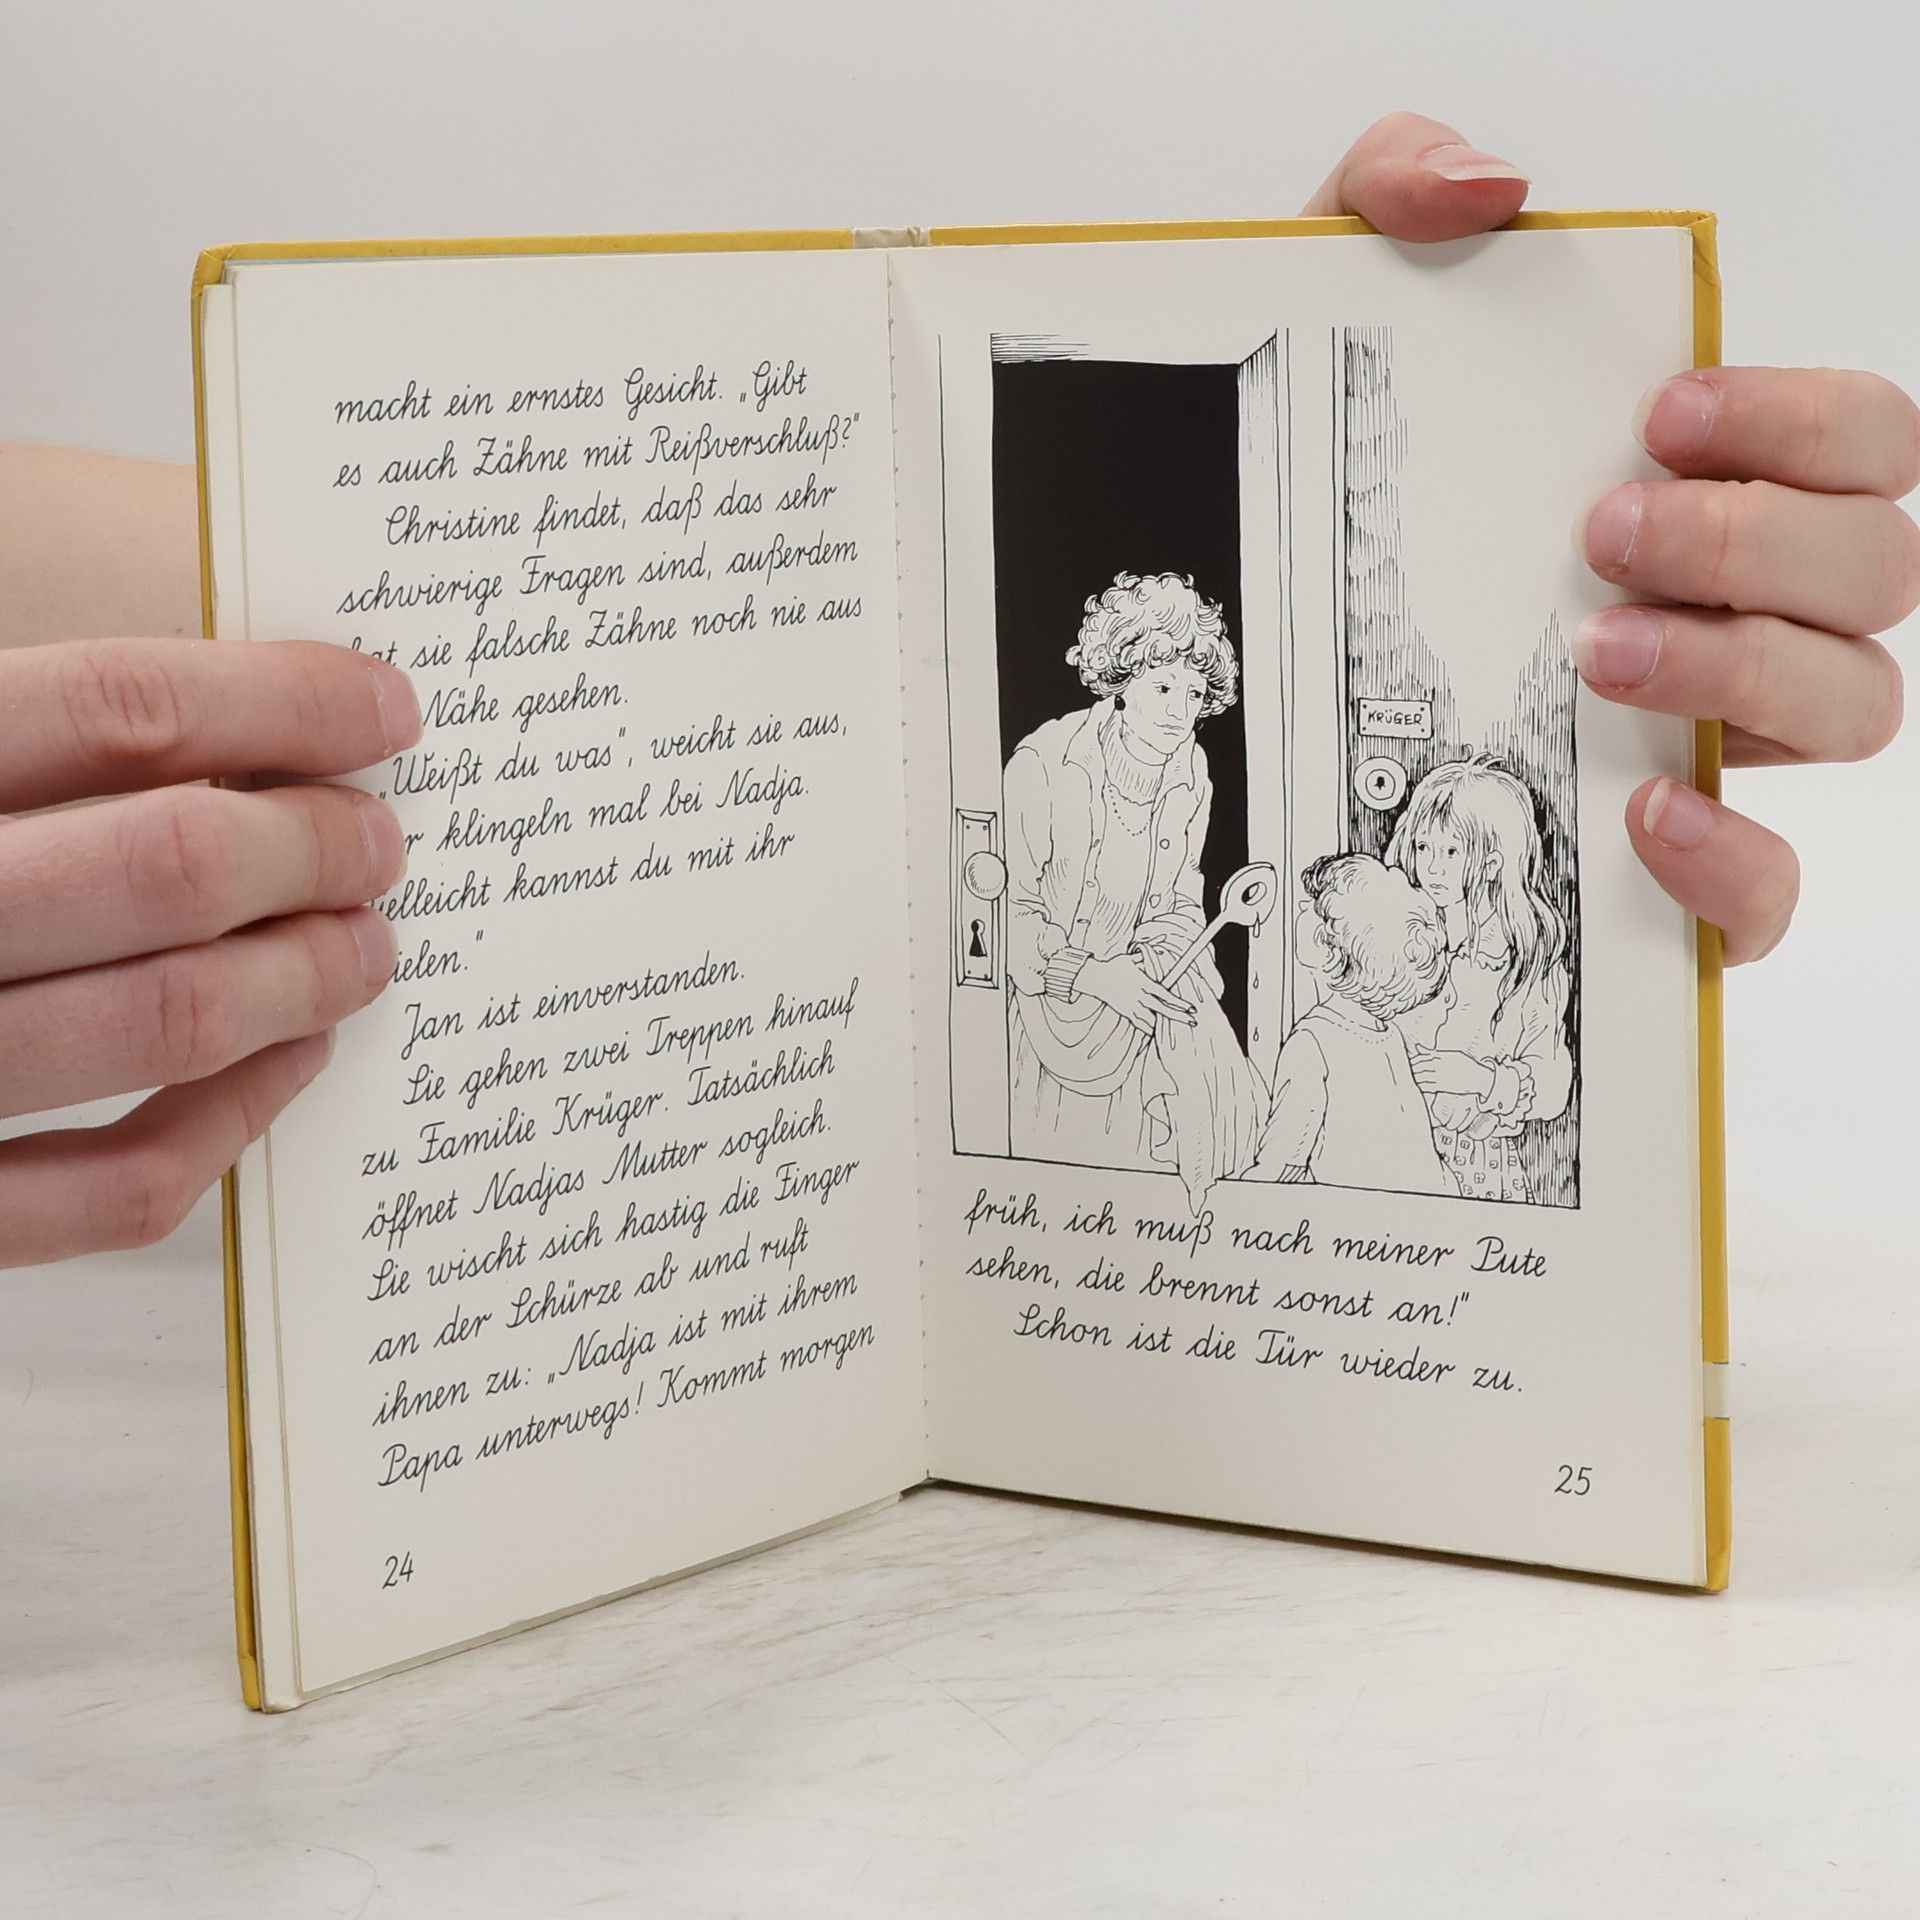 macht ein ernstes Gesicht. „Gibt
es auch Zähne mit Reißverschluß?"
Christine findet, daß das sehr
schwierige Fragen sind, außerdem
sie falsche Zähne noch nie aus
Nähe gesehen.
„Weißt du was", weicht sie aus,
klingeln mal bei Nadja.
kannst du mit ihr
Jan ist einverstanden.
Sie gehen zwei Treppen hinauf
zu Familie Krüger. Tatsächlich
öffnet Nadjas Mutter sogleich.
Sie wischt sich hastig die Finger
an der Schürze ab und ruft
ihnen zu: „Nadja ist mit ihrem
Papa unterwegs! Kommt morgen
24
KRÜGER
früh, ich muß nach meiner Pute
sehen, die brennt sonst an!"
Schon ist die Tür wieder zu.
25